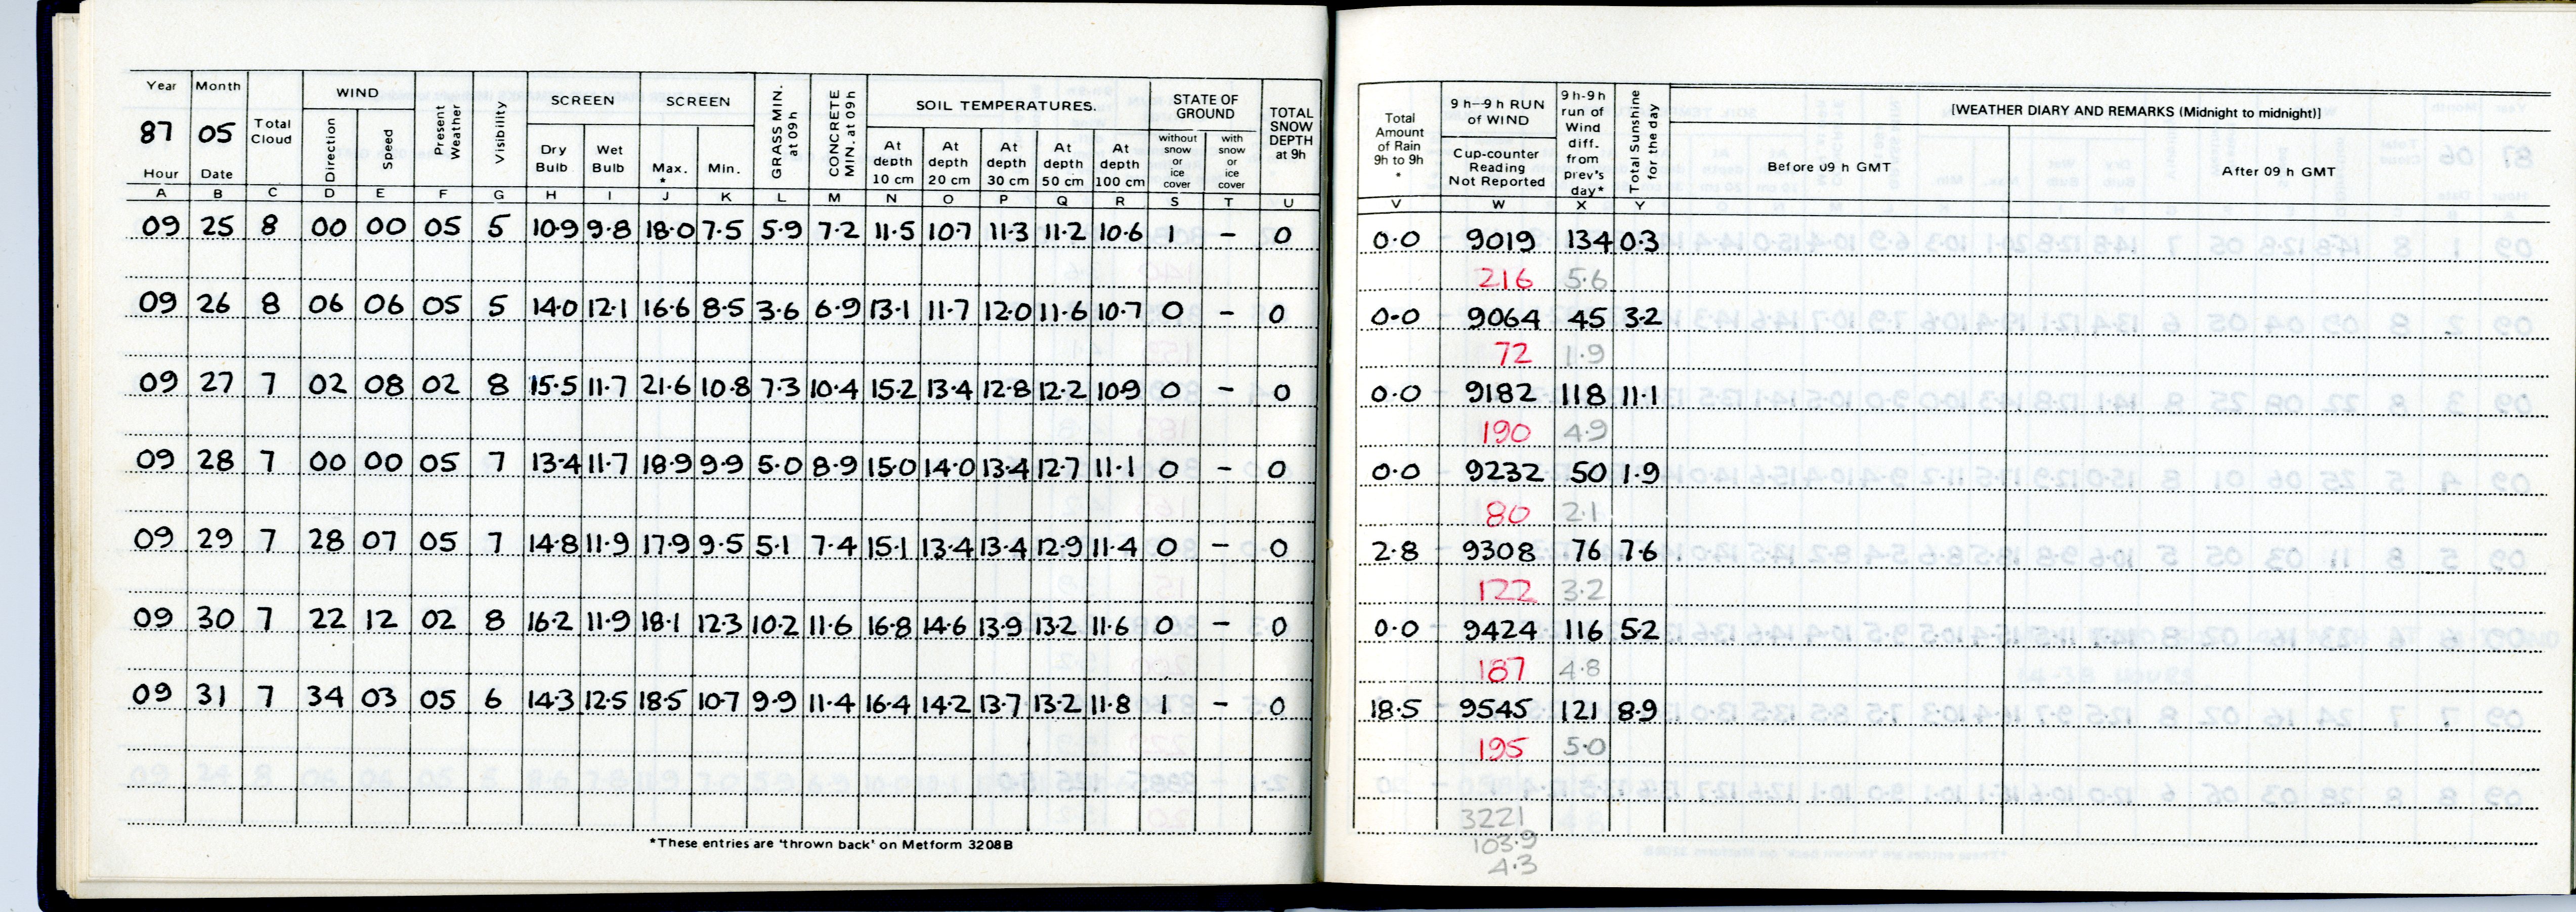 Year Month Total Cloud WIND Present Weather Visibility SCREEN SCREEN GRASS MIN. at 09h CONCRETE MIN. at 09h SOIL TEMPERATURES. STATE OF GROUND TOTAL SNOW DEPTH at 9h Total Amount of Rain 9h to 9h * 9 h—9 h RUN of WIND 9 h-9 h run of Wind diff. from prev's day* Total Sunshine for the day [WEATHER DIARY AND REMARKS (Midnight to midnight)]
87 05 Direction Speed Dry Bulb Wet Bulb Max. * Min. At depth 10 cm At depth 20 cm At depth 30 cm At depth 50 cm At depth 100 cm without snow or ice cover with snow or ice cover Cup-counter Reading Not Reported Before 09 h GMT After 09 h GMT
Hour Date
A B C D E F G H I J K L M N O P Q R S T U V W X Y
09 25 8 00 00 05 5 10.9 9.8 18.0 7.5 5.9 7.2 11.5 10.7 11.3 11.2 10.6 1 – 0 0.0 9019 134 0.3
216 5.6
09 26 8 06 06 05 5 14.0 12.1 16.6 8.5 3.6 6.9 13.1 11.7 12.0 11.6 10.7 0 – 0 0.0 9064 45 3.2
72 1.9
09 27 7 02 08 02 8 15.5 11.7 21.6 10.8 7.3 10.4 15.2 13.4 12.8 12.2 10.9 0 – 0 0.0 9182 118 11.1
190 4.9
09 28 7 00 00 05 7 13.4 11.7 18.9 9.9 5.0 8.9 15.0 14.0 13.4 12.7 11.1 0 – 0 0.0 9232 50 1.9
80 2.1
09 29 7 28 07 05 7 14.8 11.9 17.9 9.5 5.1 7.4 15.1 13.4 13.4 12.9 11.4 0 – 0 2.8 9308 76 7.6
122 3.2
09 30 7 22 12 02 8 16.2 11.9 18.1 12.3 10.2 11.6 16.8 14.6 13.9 13.2 11.6 0 – 0 0.0 9424 116 5.2
187 4.8
09 31 7 34 03 05 6 14.3 12.5 18.5 10.7 9.9 11.4 16.4 14.2 13.7 13.2 11.8 1 – 0 18.5 9545 121 8.9
195 5.0
3221
103.9
4.3
*These entries are 'thrown back' on Metform 3208B